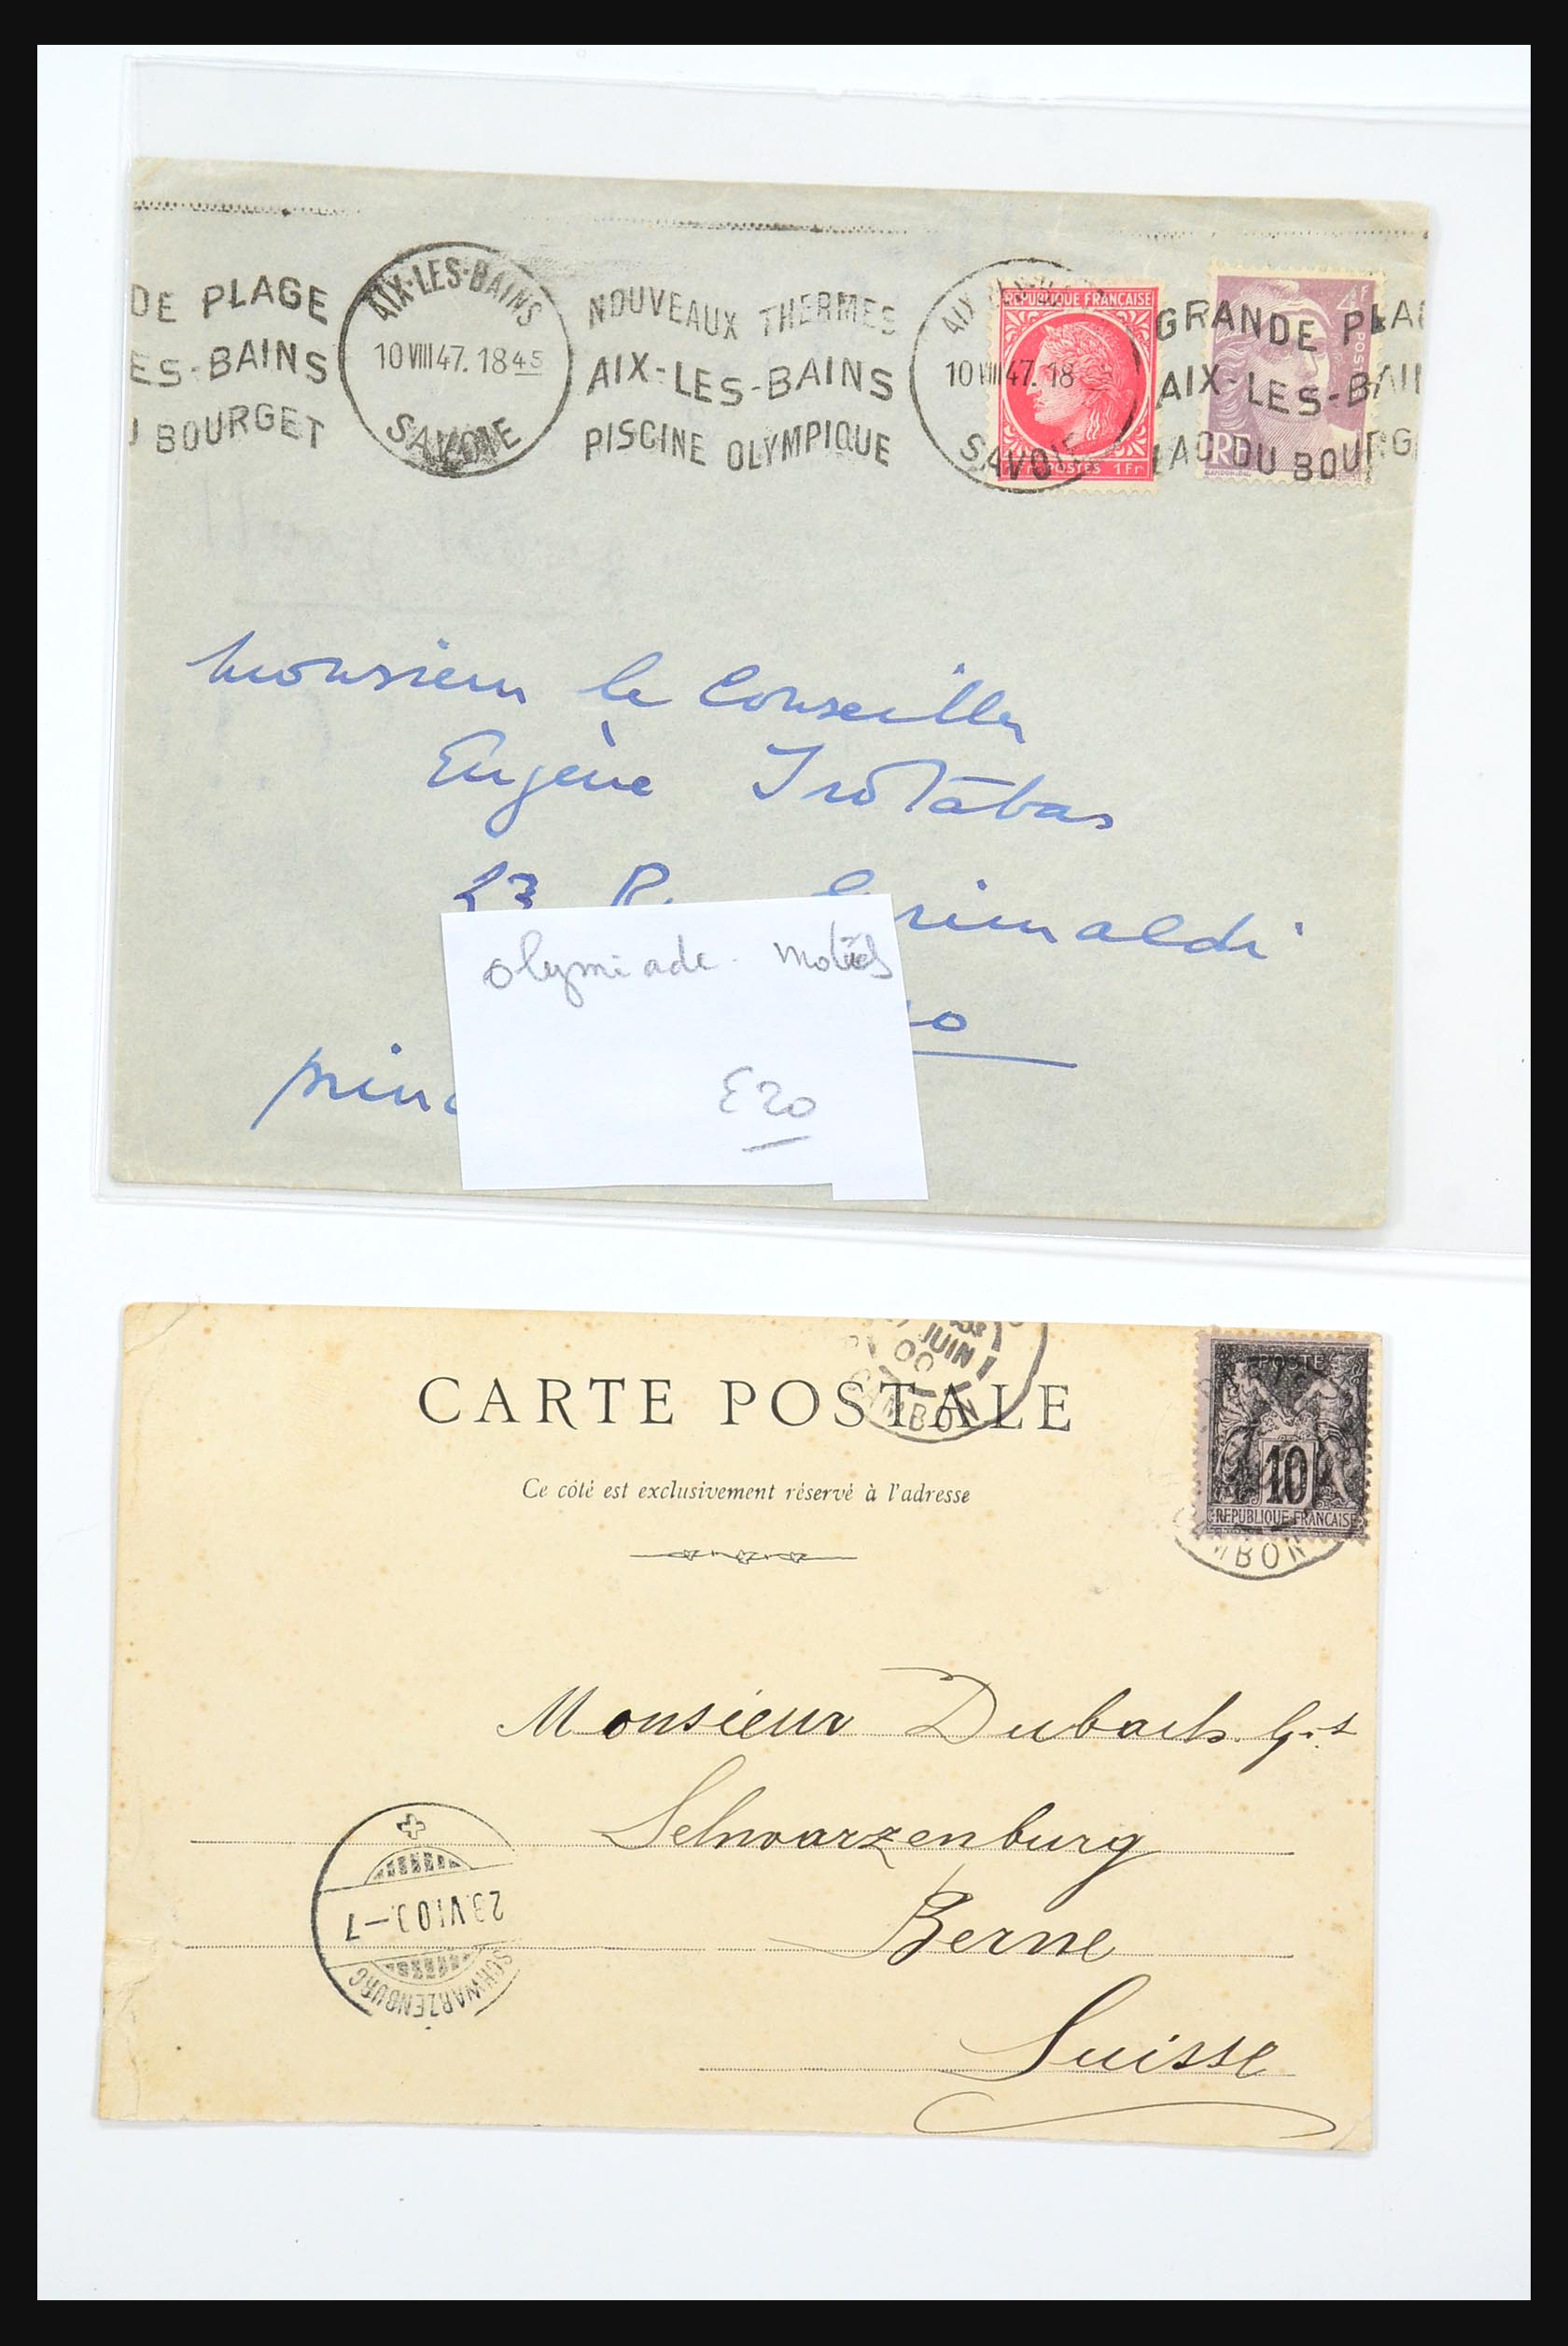 DE PLAGE
ES-BAINS
U BOURGET
AIX-LES-BAINS
10 VIII 47. 18 45
SAVOIE
NOUVEAUX THERMES
AIX-LES-BAINS
PISCINE OLYMPIQUE
AIX
10 VIII 47. 18
SAVOIE
REPUBLIQUE FRANÇAISE
POSTES 1Fr
GRANDE PLAG
AIX-LES-BAIN
LAC DU BOURG
4F
POSTES
RF
Monsieur le Conseiller
Eugène Trotabas
23 R Grimaldi
co
princ
olymiade. motief
E20
JUIN
00
CAMBON
CARTE POSTALE
Ce côté est exclusivement réservé à l'adresse
POSTE
10
REPUBLIQUE FRANÇAISE
MBON
Monsieur Dubach
Schwarzenburg
Berne
Suisse
23.VI.00.-7
SCHWARZENBURG